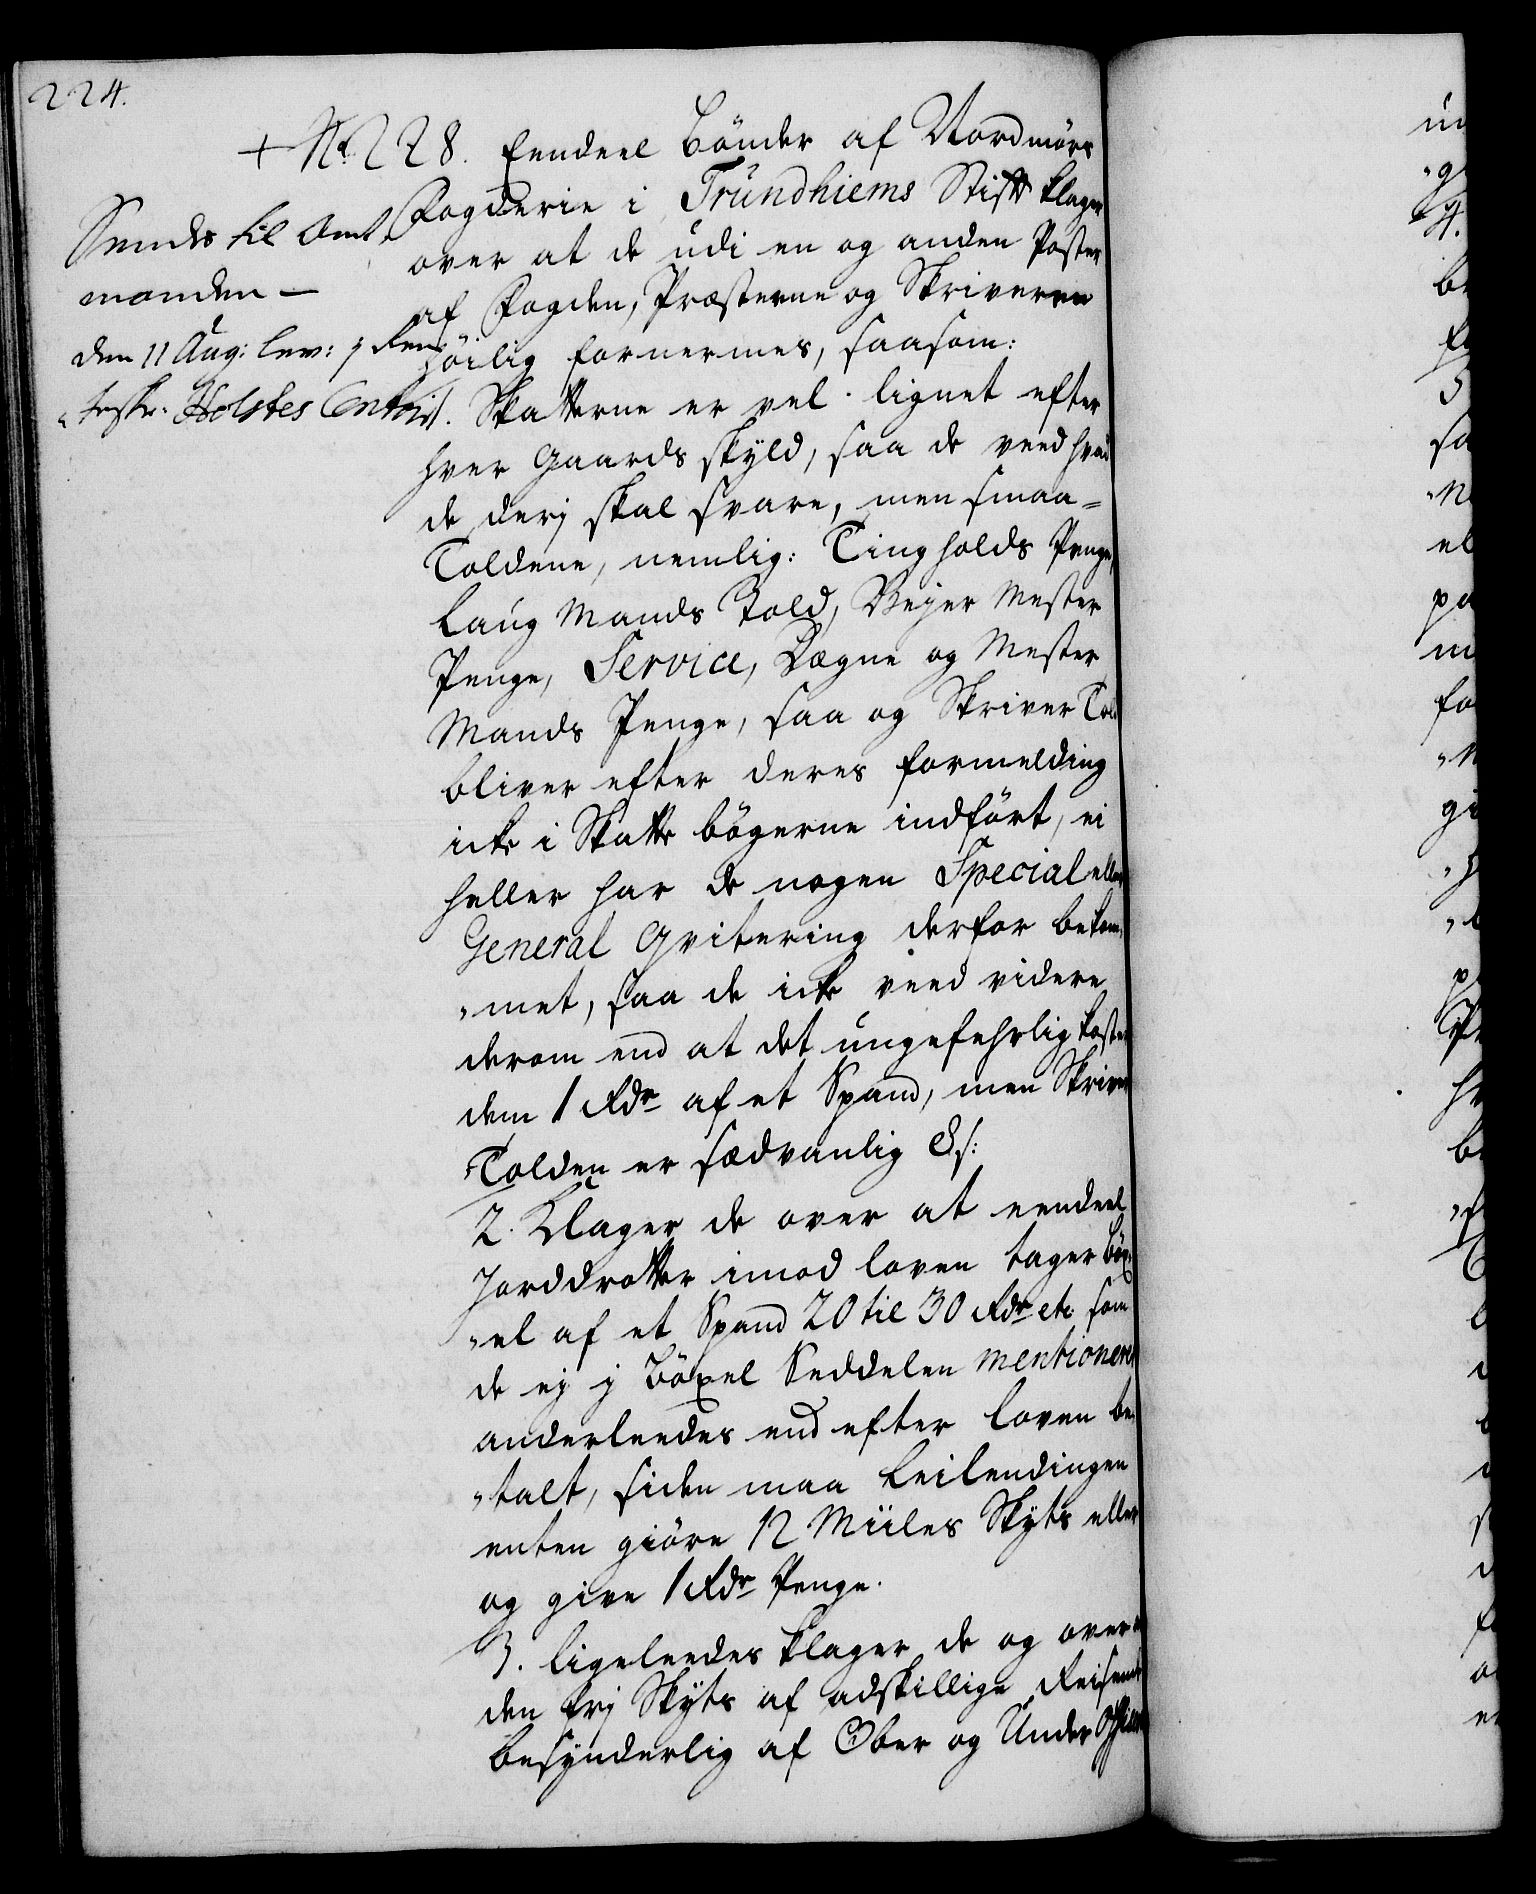 224.
+ No. 228. Eendeel Bönder af Nordmörs
Fogderie i Trundhiems Stift klager
over at de udi en og anden Poster
af Fogden, Præsterne og Skriveren
höilig fornermes, saasom:
Sendes til Amt,,
manden —
den 11 Aug: lev: i Ren,,
,,teskr: Holstes Contoir
1. Skatterne er vel lignet efter
hver Gaards skyld, saa de veed hvad
de derj skal svare, men smaa=
Toldene, nemlig: Tingholds Penge,
Laug Mands Told, Vejer Mester
Penge, Service, Dægne og Mester
Mands Penge, saa og Skriver Told
bliver efter deres formelding
icke i Skatte bögerne indfört, ei
heller har de nogen Special eller
General Qvitering derfor bekom,,
,,met, saa de icke veed videre
derom end at det ungefehrlig koster
dem 1 Rdr af et Spand, men Skriver
Tolden er sædvanlig 8 s:
2. Klager de over at eendeel
Jorddrotter imod loven tager Böx,,
,,el af et Spand 20 til 30 Rdr etc som
de ej i Böxel Seddelen mentionerer
anderleedes end efter loven be,,
,,talt, siden maa Leilendingen
enten giöre 12 Miiles Skyts eller
og give 1 Rdr Penge.
3. ligeleedes klager de og over
den frj Skyts af adskillige Reisende
besynderlig af Ober og Under Officerer